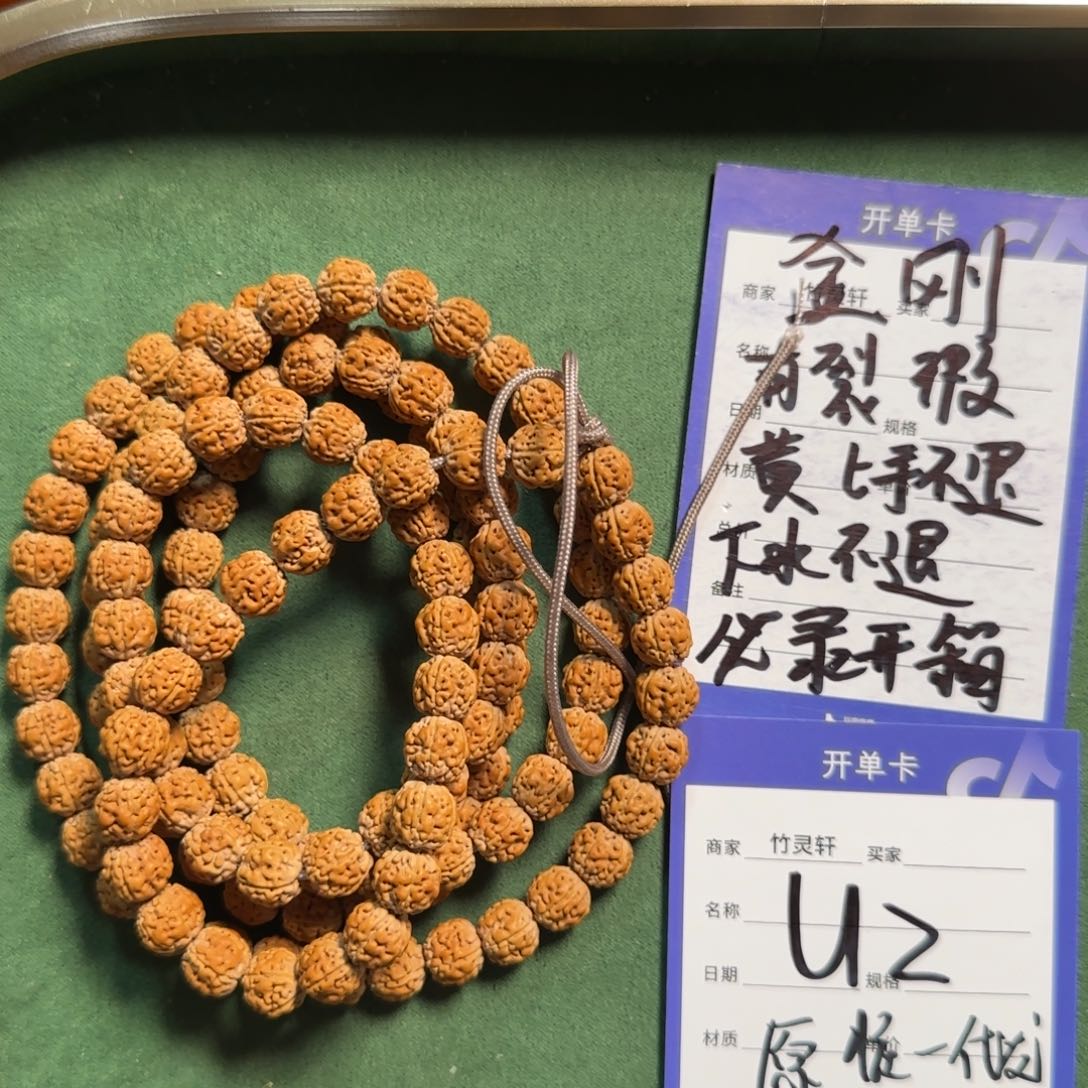 开单卡
金刚
商家 竹灵轩 买家
名称
有裂 瑕
日期 规格
材质
黄 上手不退
下水不退
备注
必录开箱
开单卡
商家 竹灵轩 买家
名称
U2
日期 规格
材质 原 一